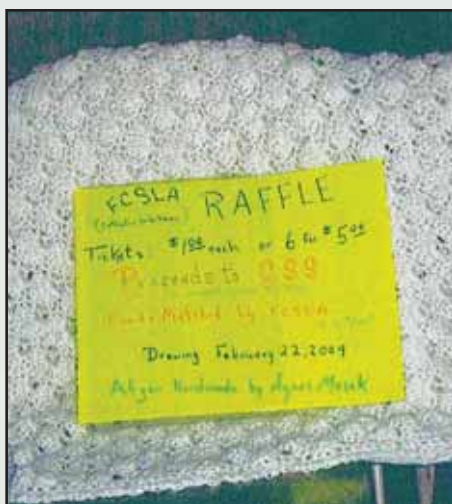 FCSLA RAFFLE
Tickets $1.00 each or 6 for $5.00
Proceeds to
Funds Matched by FCSLA
Drawing February 22, 2009
Afgan Handmade by Agnes